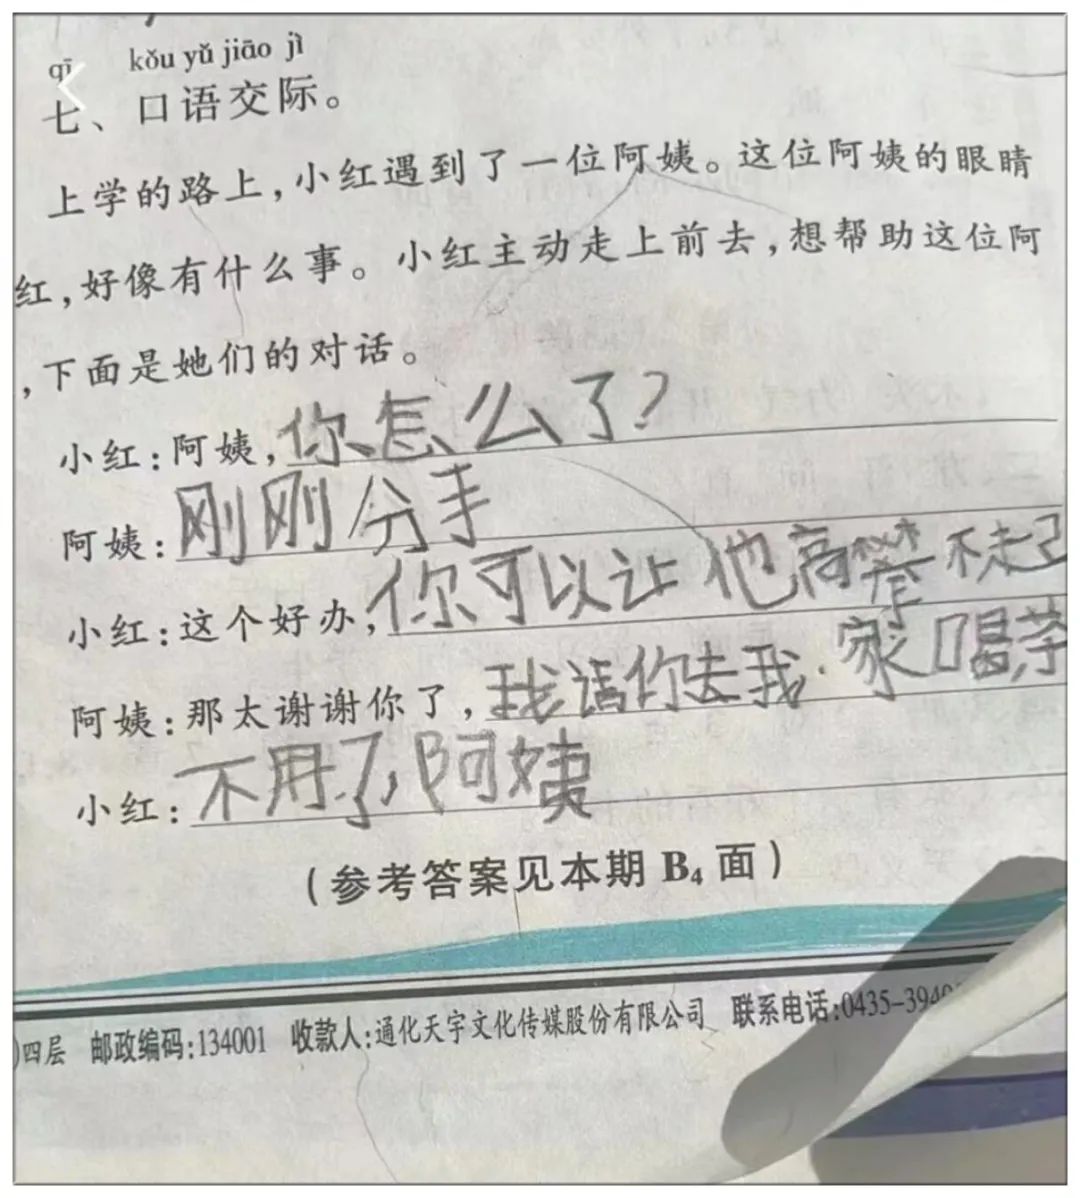 qī kǒu yǔ jiāo jì
七、口语交际。
上学的路上,小红遇到了一位阿姨。这位阿姨的眼睛
红,好像有什么事。小红主动走上前去,想帮助这位阿
,下面是她们的对话。
小红:阿姨,你怎么了?
阿姨:刚刚分手
小红:这个好办,你可以让他高攀不走己
阿姨:那太谢谢你了,我话你去我家喝茶
小红:不用了,阿姨
(参考答案见本期 B4 面)
)四层 邮政编码:134001 收款人:通化天宇文化传媒股份有限公司 联系电话:0435-3940